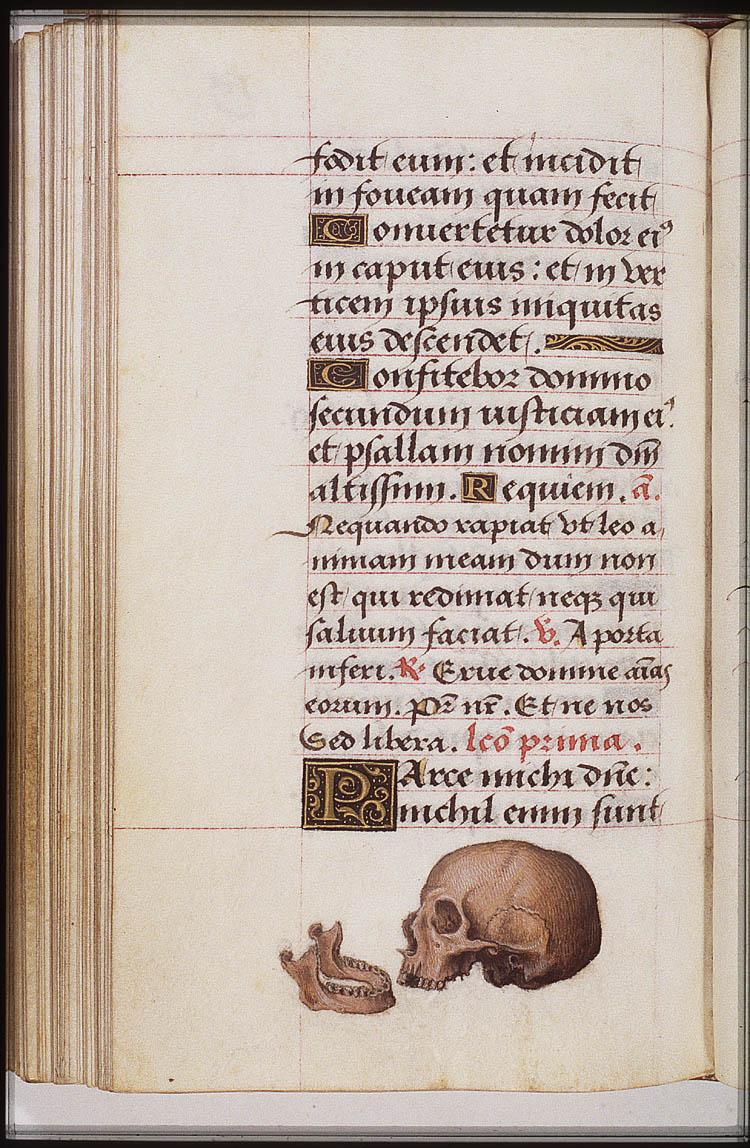 fodit eum: et incidit
in foueam quam fecit
Conuertetur dolor eiꝰ
in caput eius: et in ver
ticem ipsius iniquitas
eius descendet.
Confitebor domino
secundum iusticiam eiꝰ.
et psallam nomini dñi
altissimi. Requiem. ã.
Nequando rapiat vt leo a
nimam meam dum non
est qui redimat neqꝫ qui
saluum faciat. v. A porta
inferi. R. Erue domine aĩas
eorum. Pr̃ nr̃. Et ne nos
Sed libera. lcõ prima.
PArce michi dñe:
nichil enim sunt